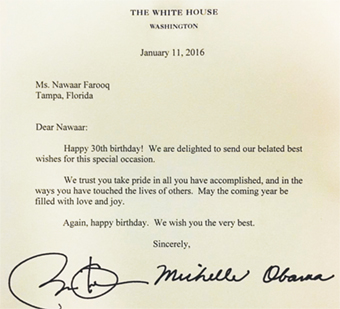 THE WHITE HOUSE
WASHINGTON
January 11, 2016
Ms. Nawaar Farooq
Tampa, Florida
Dear Nawaar:
Happy 30th birthday! We are delighted to send our belated best
wishes for this special occasion.
We trust you take pride in all you have accomplished, and in the
ways you have touched the lives of others. May the coming year be
filled with love and joy.
Again, happy birthday. We wish you the very best.
Sincerely,
Michelle Obama